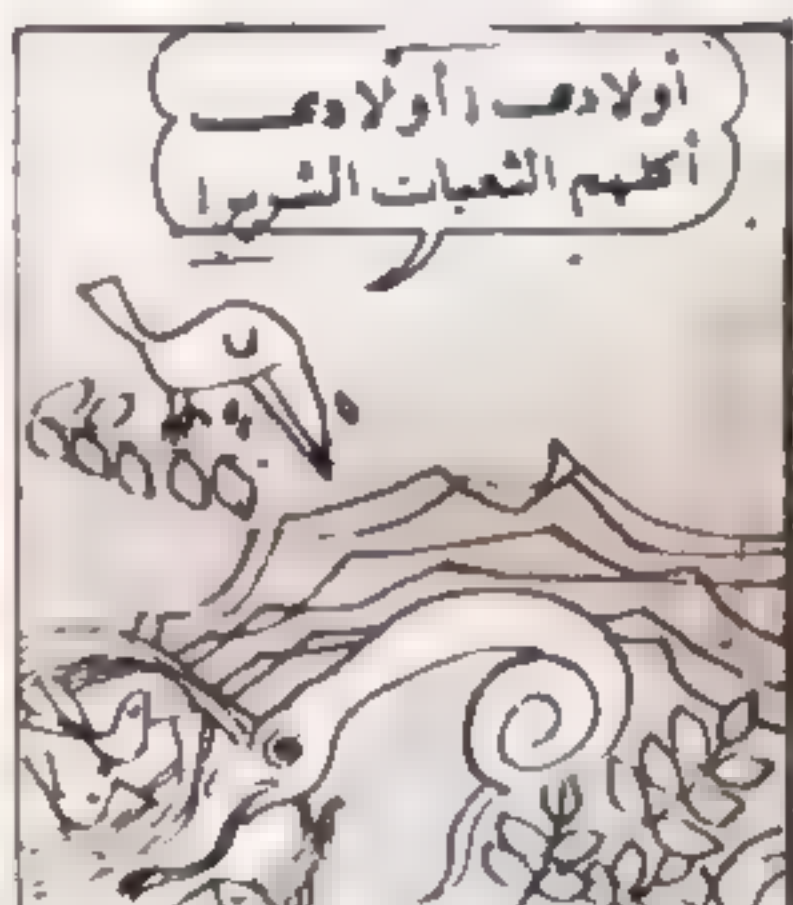 أولادى ، أولادى
أكلهم الثعبان الشرير !